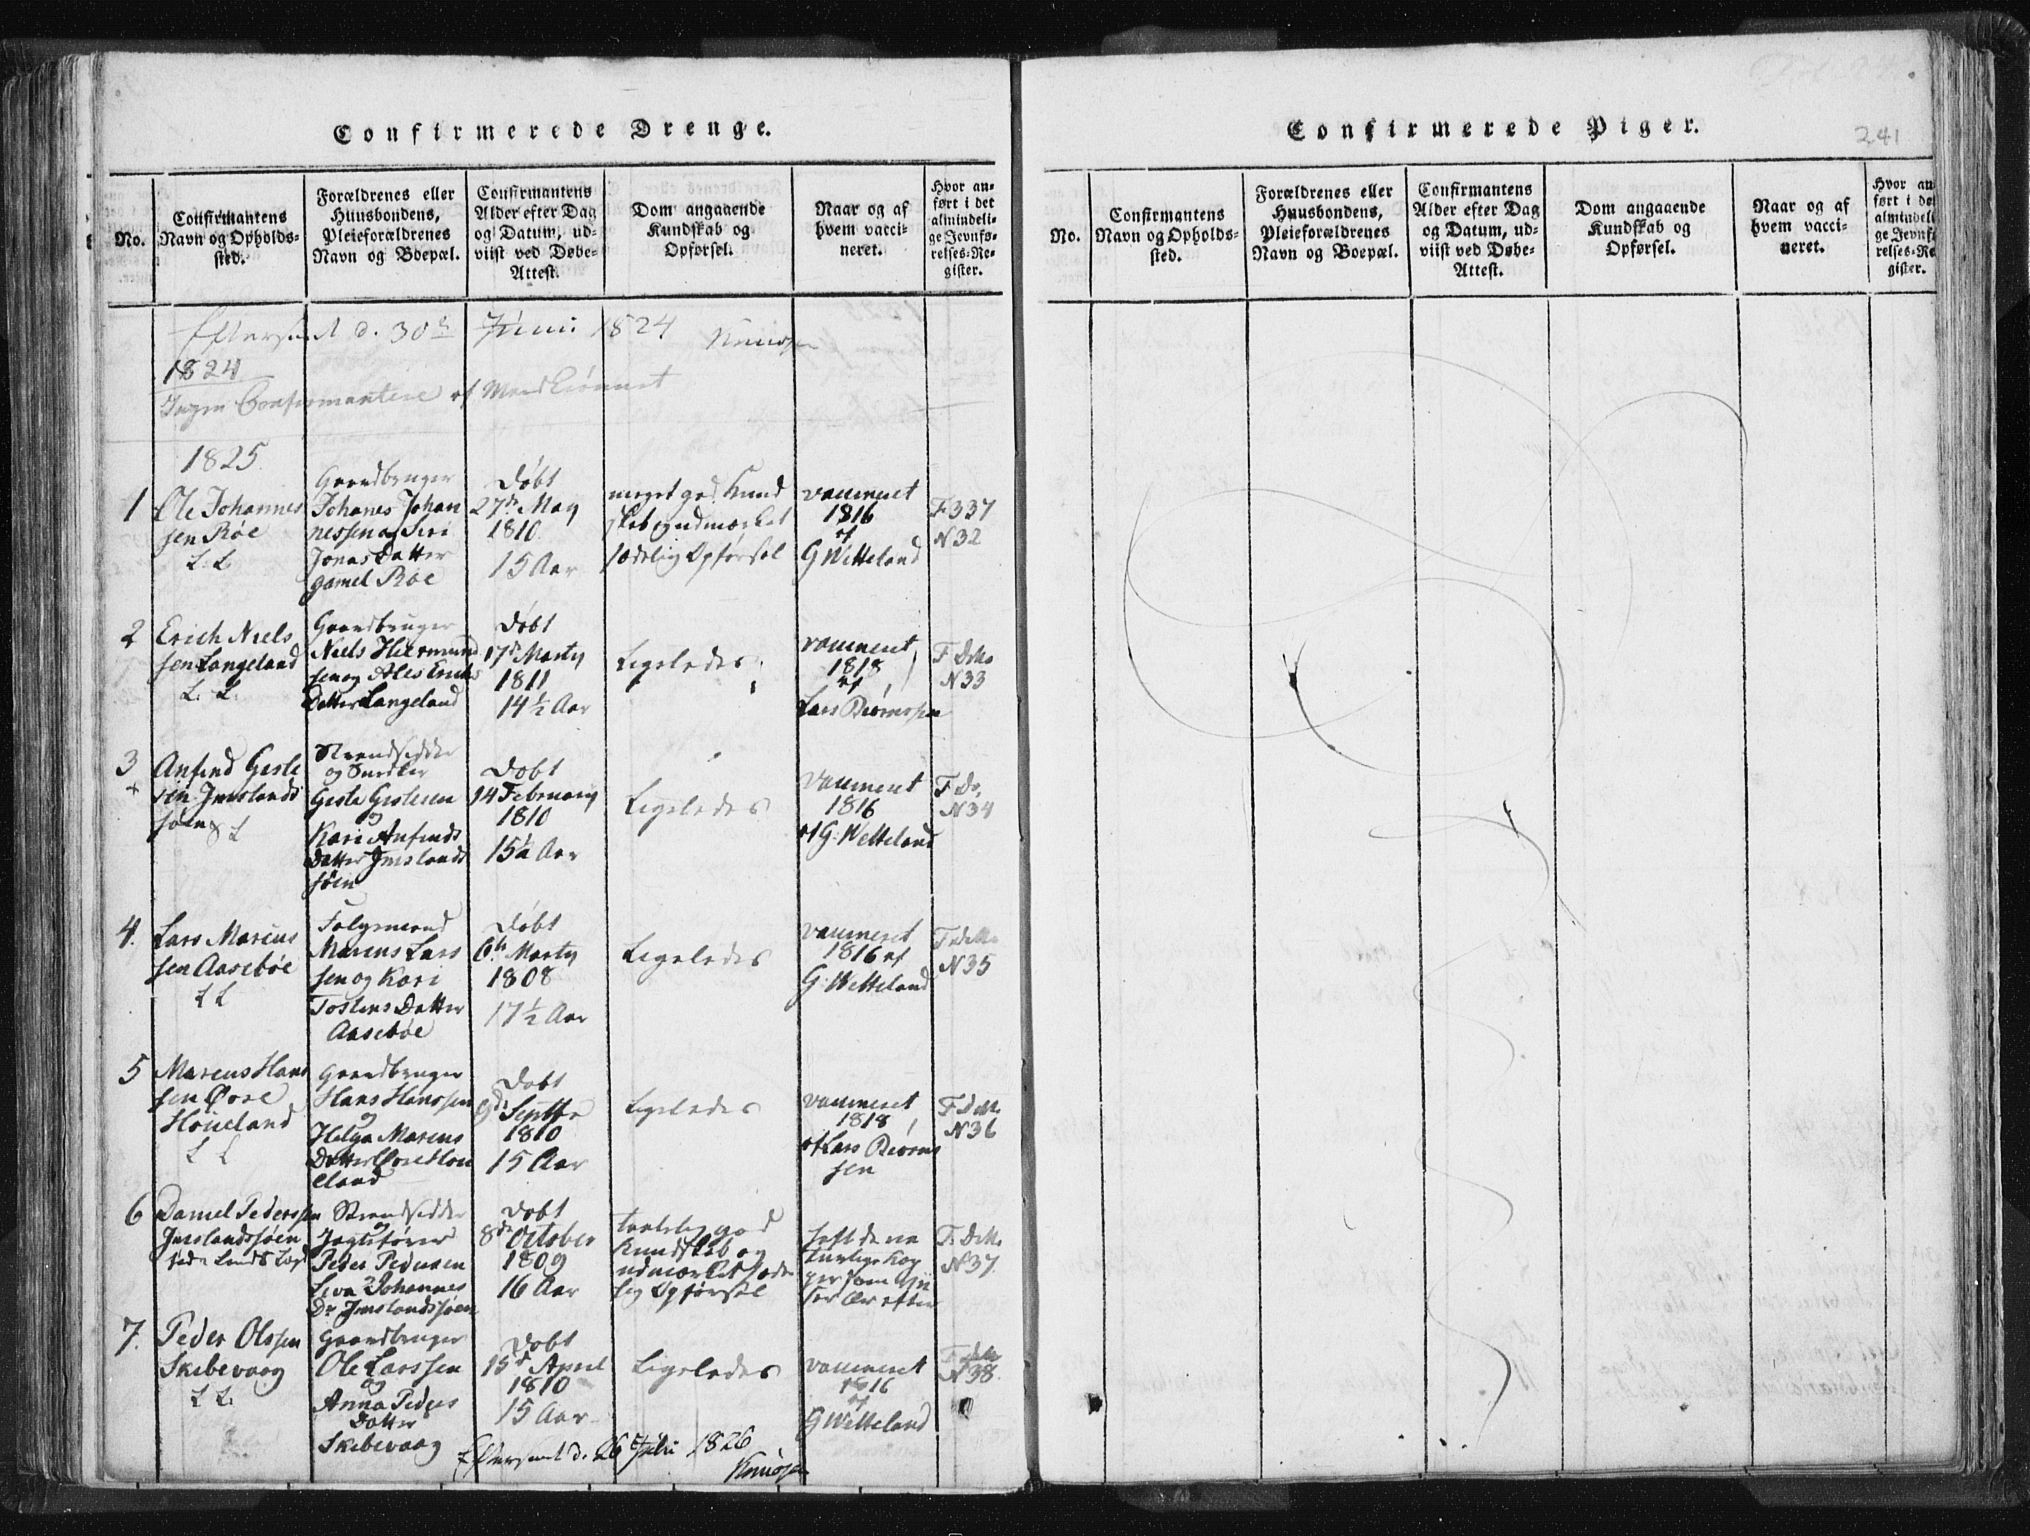 Confirmerede Drenge.
No.
Confirmantens
Navn og Opholds-
sted.
Forældrenes eller
Huusbondens,
Pleieforældrenes
Navn og Boepæl.
Confirmantens
Alder efter Dag
og Datum, ud-
viist ved Døbe-
Attest.
Dom angaaende
Kundskab og
Opførsel.
Naar og af
hvem vacci-
neret.
Hvor an-
ført i det
almindeli-
ge Jevnfø-
relses-Re-
gister.
Efterseet d. 30te Juni 1824
1824
Ingen Confirmantere af Mandkiønnet
1825
1
Ole Johannes
sen Røe
L. L.
Gaardbruger
Johanes Johan
nessen og Siri
Jonas Datter
gamel Røe
Døbt
27de May
1810
15 Aar
meget god Kund
skab og udmærket
sædelig Opførsel
vaccineret
1816
af
G Wetteland
F 337
N 32
2
Erich Niels
sen Langeland
L. L.
Gaardbruger
Niels Hermund
sen og Ales Erichs
Datter Langeland
Døbt
17de Marty
1811
14½ Aar
Ligeledes
vaccineret
1818
af
Lars Biørnssen
F. D⁠o
N 33
3
Anfind Gistle
sen Imslands
søen
L
Strandsidder
og Snedker
Gistle Gistlesen
og
Kari Anfinds
Datter Imslands
søen
Døbt
14 February
1810
15½ Aar
Ligeledes
vaccineret
1816
af G: Wetteland
F Do,
N 34
4.
Lars Marcus
sen Aasebøe
L L
Marcus Lars
sen og Kari
Tostens Datter
Aasebøe
Døbt
6te Marty
1808
17½ Aar
Ligeledes
vaccineret
1816 af
G: Wetteland
N 35
5
Marcus Hans
sen Øvre
Høueland
L L
Gaardbruger
Hans Hanssen
og
Helga Marcus
Datter Øvre Høu
eland
Døbt
9de Septbr
1810
15 Aar
Ligeledes
vaccineret
1818
af Lars Biørns
sen
N 36
6
Daniel Pederssen
Imslandssøen
Strandsidder
og
Jagtefører
Peder Pedersen
Johannes
Dr Imslandssøen
Døbt
8de October
1809
16 Aar
taalelig god
Kundskab og
udmærket sæde
lig Opførsel
haft de na
turlige Kop
per som Vii
ser Ar efter
N 37
7.
Peder Olssen
Skibevaag
L L.
Gaardbruger
Ole Larssen
og
Anna Peders
Datter
Skibevaag
Døbt
15de April
1810
15 Aar
Ligeledes
vaccineret
1816
af
G Wetteland
N 38
Efterseet d. 26 Juli 1826
Confirmerede Piger.
241
No.
Confirmantens
Navn og Opholds-
sted.
Forældrenes eller
Huusbondens,
Pleieforældrenes
Navn og Boepæl.
Confirmantens
Alder efter Dag
og Datum, ud-
viist ved Døbe-
Attest.
Dom angaaende
Kundskab og
Opførsel.
Naar og af
hvem vacci-
neret.
Hvor an
ført i de
almindeli
ge Jevnf
relses-Re
gister.